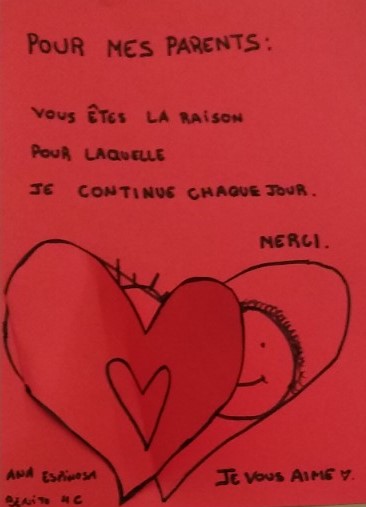 POUR MES PARENTS:
VOUS ÊTES LA RAISON
POUR LAQUELLE
JE CONTINUE CHAQUE JOUR.
MERCI.
JE VOUS AIME ♡.
ANA ESPINOSA
BENITO 4C